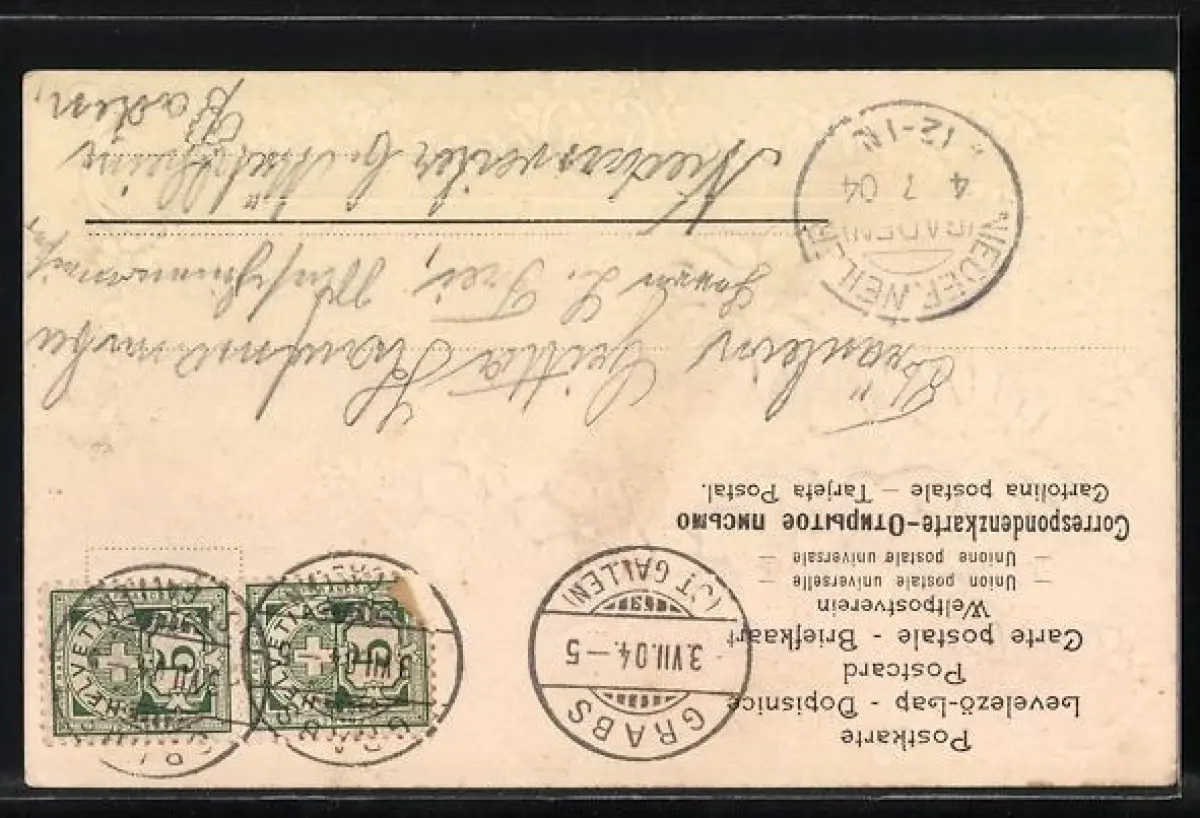 Postkarte
Levelező-Lap - Dopisnice
Postcard
Carte postale - Briefkaart
Weltpostverein
— Union postale universelle —
— Unione postale universale —
Correspondenzkarte-Открытое письмо
Cartolina postale — Tarjeta Postal.
GRABS
3.VII.04.—5
(ST GALLEN)
HELVETIA
5
HELVETIA
5
Fräulein
Herrn L. Frei,
Niederweiler b. Müllheim
Baden.
(BADEN)
4 7 04
12-1N